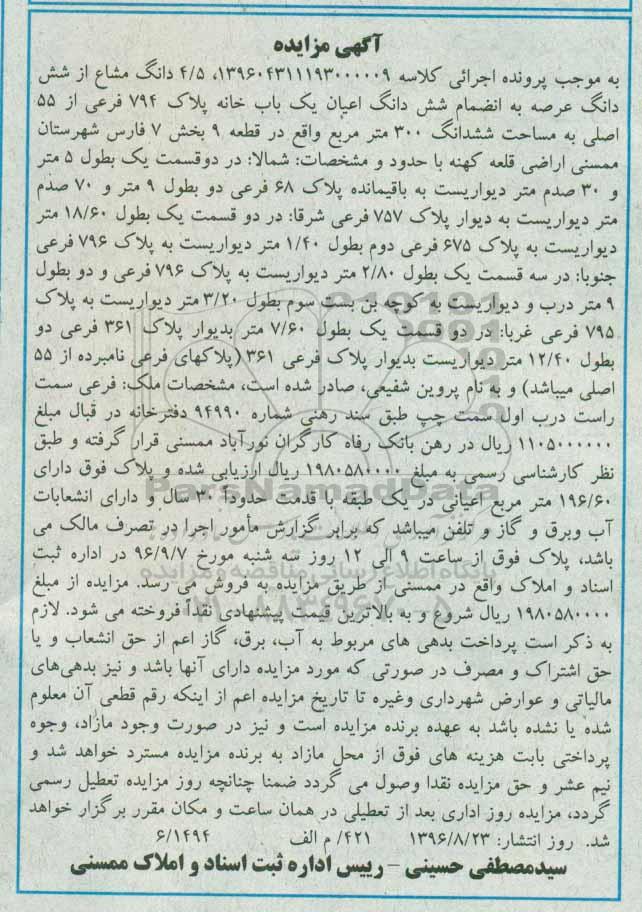 آگهی مزایده
به موجب پرونده اجرائی کلاسه ۱۳۹۶۰۴۳۱۱۱۹۳۰۰۰۰۰۹، ۴/۵ دانگ مشاع از شش
دانگ عرصه به انضمام شش دانگ اعیان یک باب خانه پلاک ۷۹۴ فرعی از ۵۵
اصلی به مساحت ششدانگ ۳۰۰ متر مربع واقع در قطعه ۹ بخش ۷ فارس شهرستان
ممسنی اراضی قلعه کهنه با حدود و مشخصات: شمالا: در دوقسمت یک بطول ۵ متر
و ۳۰ صدم متر دیواریست به باقیمانده پلاک ۶۸ فرعی دو بطول ۹ متر و ۷۰ صدم
متر دیواریست به دیوار پلاک ۷۵۷ فرعی شرقا: در دو قسمت یک بطول ۱۸/۶۰ متر
دیواریست به پلاک ۶۷۵ فرعی دوم بطول ۱/۴۰ متر دیواریست به پلاک ۷۹۶ فرعی
جنوبا: در سه قسمت یک بطول ۲/۸۰ متر دیواریست به پلاک ۷۹۶ فرعی و دو بطول
۹ متر درب و دیواریست به کوچه بن بست سوم بطول ۳/۲۰ متر دیواریست به پلاک
۷۹۵ فرعی غربا: در دو قسمت یک بطول ۷/۶۰ متر بدیوار پلاک ۳۶۱ فرعی دو
بطول ۱۲/۴۰ متر دیواریست بدیوار پلاک فرعی ۳۶۱ (پلاکهای فرعی نامبرده از ۵۵
اصلی میباشد) و به نام پروین شفیعی، صادر شده است، مشخصات ملک: فرعی سمت
راست درب اول سمت چپ طبق سند رهنی شماره ۹۴۹۹۰ دفترخانه در قبال مبلغ
۱۱۰۵۰۰۰۰۰۰ ریال در رهن بانک رفاه کارگران نورآباد ممسنی قرار گرفته و طبق
نظر کارشناسی رسمی به مبلغ ۱۹۸۰۵۸۰۰۰۰ ریال ارزیابی شده و پلاک فوق دارای
۱۹۶/۶۰ متر مربع اعیانی در یک طبقه با قدمت حدودا ۳۰ سال و دارای انشعابات
آب وبرق و گاز و تلفن میباشد که برابر گزارش مأمور اجرا در تصرف مالک می
باشد، پلاک فوق از ساعت ۹ الی ۱۲ روز سه شنبه مورخ ۹۶/۹/۷ در اداره ثبت
اسناد و املاک واقع در ممسنی از طریق مزایده به فروش می رسد. مزایده از مبلغ
۱۹۸۰۵۸۰۰۰۰ ریال شروع و به بالاترین قیمت پیشنهادی نقداً فروخته می شود. لازم
به ذکر است پرداخت بدهی های مربوط به آب، برق، گاز اعم از حق انشعاب و یا
حق اشتراک و مصرف در صورتی که مورد مزایده دارای آنها باشد و نیز بدهی‌های
مالیاتی و عوارض شهرداری وغیره تا تاریخ مزایده اعم از اینکه رقم قطعی آن معلوم
شده یا نشده باشد به عهده برنده مزایده است و نیز در صورت وجود مازاد، وجوه
پرداختی بابت هزینه های فوق از محل مازاد به برنده مزایده مسترد خواهد شد و
نیم عشر و حق مزایده نقدا وصول می گردد ضمنا چنانچه روز مزایده تعطیل رسمی
گردد، مزایده روز اداری بعد از تعطیلی در همان ساعت و مکان مقرر برگزار خواهد
شد. روز انتشار: ۱۳۹۶/۸/۲۳ ۴۲۱/ م الف ۶/۱۴۹۴
سیدمصطفی حسینی - رییس اداره ثبت اسناد و املاک ممسنی
ParsNamadData
پایگاه اطلاع رسانی مناقصه و مزایده